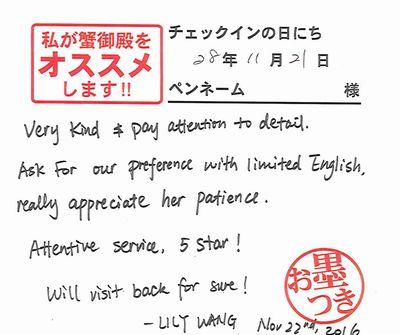 私が蟹御殿を
オススメ
します!!
チェックインの日にち
28年 11月 21日
ペンネーム 様
Very kind & pay attention to detail.
Ask For our preference with limited English,
really appreciate her patience.
Attentive service, 5 star!
Will visit back for sure!
- LILY WANG Nov 22nd, 2016
お墨
つき